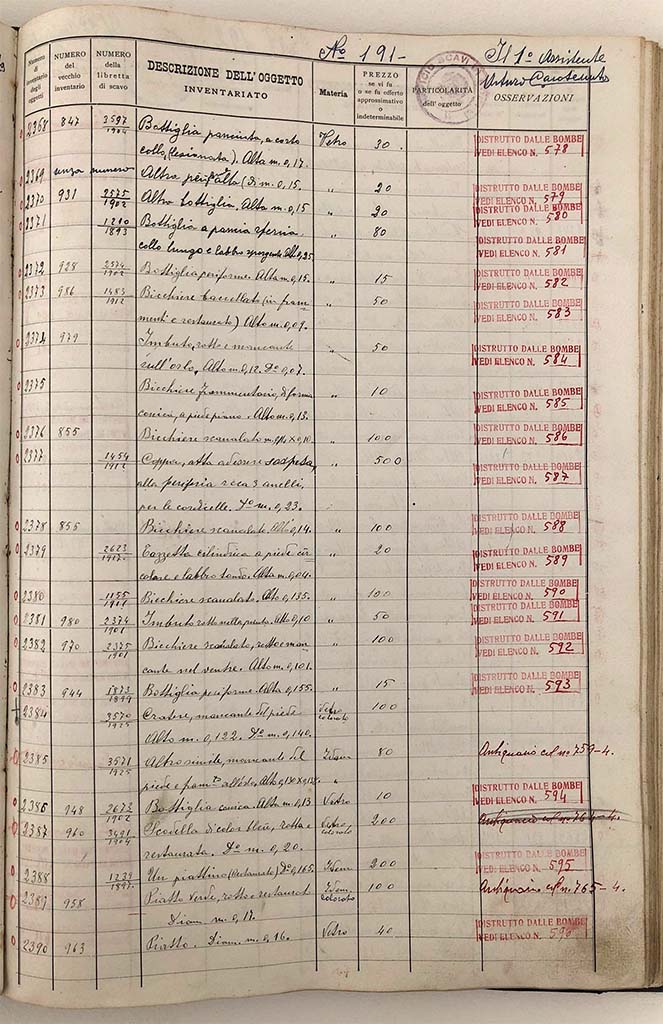 Nº 191- Il 1º Assistente
Arturo Carotenuto
Numero d'inventario degli oggetti
NUMERO del vecchio inventario
NUMERO della libretta di scavo
DESCRIZIONE DELL'OGGETTO INVENTARIATO
Materia
PREZZO se vi fu o se fu offerto approssimativo o indeterminabile
PARTICOLARITÀ dell'oggetto
OSSERVAZIONI
2368 847 3597/1904 Bottiglia panciuta, a corto Vetro 30. DISTRUTTO DALLE BOMBE
collo, (lesionata). Alta m. 0,17. VEDI ELENCO N. 578
2369 senza numero Altra alta (D. m. 0,15. " 20 DISTRUTTO DALLE BOMBE
VEDI ELENCO N. 579
2370 931 2575/1902 Altra bottiglia. Alta m. 0,15 " 20 DISTRUTTO DALLE BOMBE
VEDI ELENCO N. 580
2371 1210/1893 Bottiglia a pancia sferica " 80 DISTRUTTO DALLE BOMBE
collo lungo e labbro sporgente. Alt. 0,25 VEDI ELENCO N. 581
2372 928 2574/1902 Bottiglia periforme. Alta m. 0,15. " 15 DISTRUTTO DALLE BOMBE
VEDI ELENCO N. 582
2373 986 1483/1912 Bicchiere baccellato (in fram " 50 DISTRUTTO DALLE BOMBE
menti e restaurato). Alto m. 0,09. VEDI ELENCO N. 583
2374 979 Imbuto, rotto e mancante " 50 DISTRUTTO DALLE BOMBE
sull'orlo. Alto m. 0,12. Dº 0,07. VEDI ELENCO N. 584
2375 Bicchiere frammentario, di forma " 10 DISTRUTTO DALLE BOMBE
conica, a piede piano. Alto m. 0,13. VEDI ELENCO N. 585
2376 855 Bicchiere scanalato m. 0,10 " 100 DISTRUTTO DALLE BOMBE
VEDI ELENCO N. 586
2377 1454/1912 Coppa, atta ad essere sospesa, " 500 DISTRUTTO DALLE BOMBE
alla periferia reca 3 anelli, VEDI ELENCO N. 587
per le cordicelle. Dº m. 0,23.
2378 855 Bicchiere scanalato. Alto 0,14. " 100 DISTRUTTO DALLE BOMBE
VEDI ELENCO N. 588
2379 2623 Tazzetta cilindrica a piede cir " 20 DISTRUTTO DALLE BOMBE
colare e labbro tondo. Alta m. 0,04. VEDI ELENCO N. 589
2380 1155 Bicchiere scanalato. Alto 0,135. " 100 DISTRUTTO DALLE BOMBE
VEDI ELENCO N. 590
2381 980 2374/1901 Imbuto rotto nella punta. Alto 0,10 " 50 DISTRUTTO DALLE BOMBE
VEDI ELENCO N. 591
2382 970 2375/1901 Bicchiere scanalato, rotto e man " 100 DISTRUTTO DALLE BOMBE
cante nel ventre. Alto m. 0,101. VEDI ELENCO N. 592
2383 944 1873/1899 Bottiglia periforme. Alta 0,155. " 15 DISTRUTTO DALLE BOMBE
VEDI ELENCO N. 593
2384 3570/1925 Cratere, mancante del piede Vetro colorato 100
Alto m. 0,122. Dº m. 0,140.
2385 3571/1925 Altro simile, mancante del Idem 80 Antiquario col nº 759-4.
piede e Alto 0,130
2386 948 2673/1902 Bottiglia conica. Alta m. 0,13 Vetro 10 DISTRUTTO DALLE BOMBE
VEDI ELENCO N. 594
2387 960 3491/1904 Scodella di color bleu, rotta e Vetro colorato 200 Antiquario col nº 764-4.
restaurata. Dº m. 0,20.
2388 1239/1897 Un piattino (restaurato) Dº 0,165. Idem 200 DISTRUTTO DALLE BOMBE
VEDI ELENCO N. 595
2389 958 Piatto verde, rotto e restaurat Idem colorato 100 Antiquario col nº 765-4.
Diam. m. 0,17.
2390 963 Piatto. Diam. m. 0,16. Vetro 40 DISTRUTTO DALLE BOMBE
VEDI ELENCO N. 596